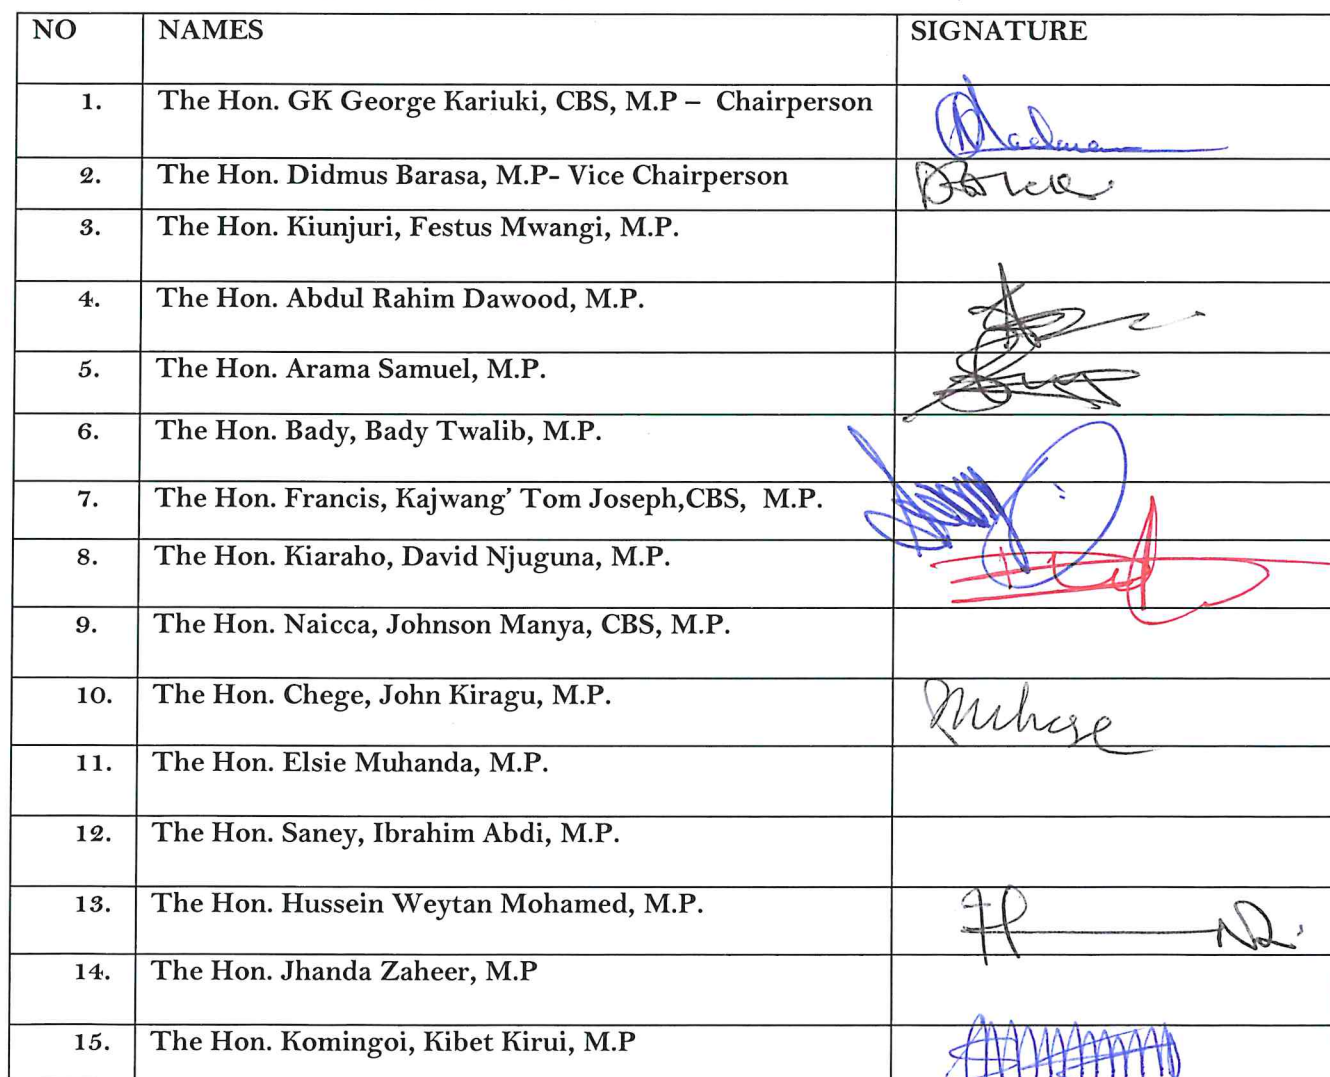 NO NAMES SIGNATURE
1. The Hon. GK George Kariuki, CBS, M.P – Chairperson
2. The Hon. Didmus Barasa, M.P- Vice Chairperson
3. The Hon. Kiunjuri, Festus Mwangi, M.P.
4. The Hon. Abdul Rahim Dawood, M.P.
5. The Hon. Arama Samuel, M.P.
6. The Hon. Bady, Bady Twalib, M.P.
7. The Hon. Francis, Kajwang’ Tom Joseph,CBS, M.P.
8. The Hon. Kiaraho, David Njuguna, M.P.
9. The Hon. Naicca, Johnson Manya, CBS, M.P.
10. The Hon. Chege, John Kiragu, M.P.
11. The Hon. Elsie Muhanda, M.P.
12. The Hon. Saney, Ibrahim Abdi, M.P.
13. The Hon. Hussein Weytan Mohamed, M.P.
14. The Hon. Jhanda Zaheer, M.P
15. The Hon. Komingoi, Kibet Kirui, M.P